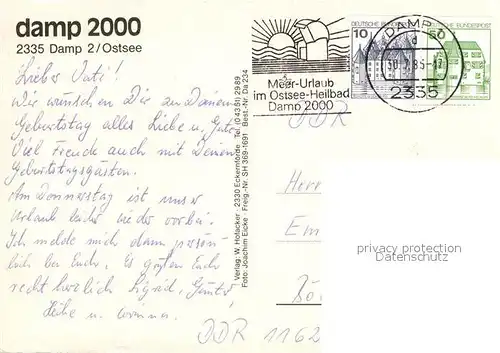 damp 2000
2335 Damp 2/Ostsee
Lieber Vati!
Wir wünschen Dir zu Deinem
Geburtstag alles Liebe u. Gute,
Viel Freude auch mit Deinen
Geburtstagsgästen.
Am Donnerstag ist unser
Urlaub leider wieder vorbei.
Ich melde mich dann persön-
lich bei Euch. Es grüßen Euch
recht herzlich Sigrid, Günter,
Heike u.
Verlag W. Holacker · 2330 Eckernförde · Tel. (04351) 2989
Foto: Joachim Eicke · Freig.-Nr. SH 369-1691 Best.-Nr. Da 234
Meer-Urlaub
im Ostsee-Heilbad
Damp 2000
DEUTSCHE BUNDESPOST
10
DEUTSCHE BUNDESPOST
50
DAMP
d
30.7.85-17
2335
DDR
Herr
Em
privacy protection
Datenschutz
DDR 1162